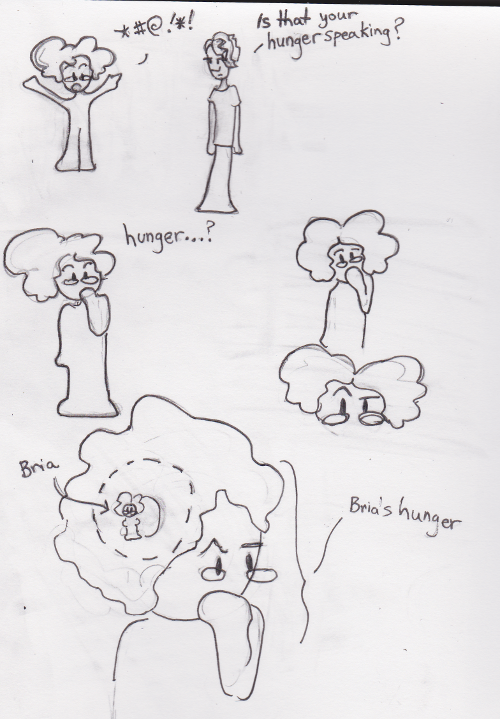 *#@!*!
Is that your
hunger speaking?
hunger...?
Bria
Bria's hunger